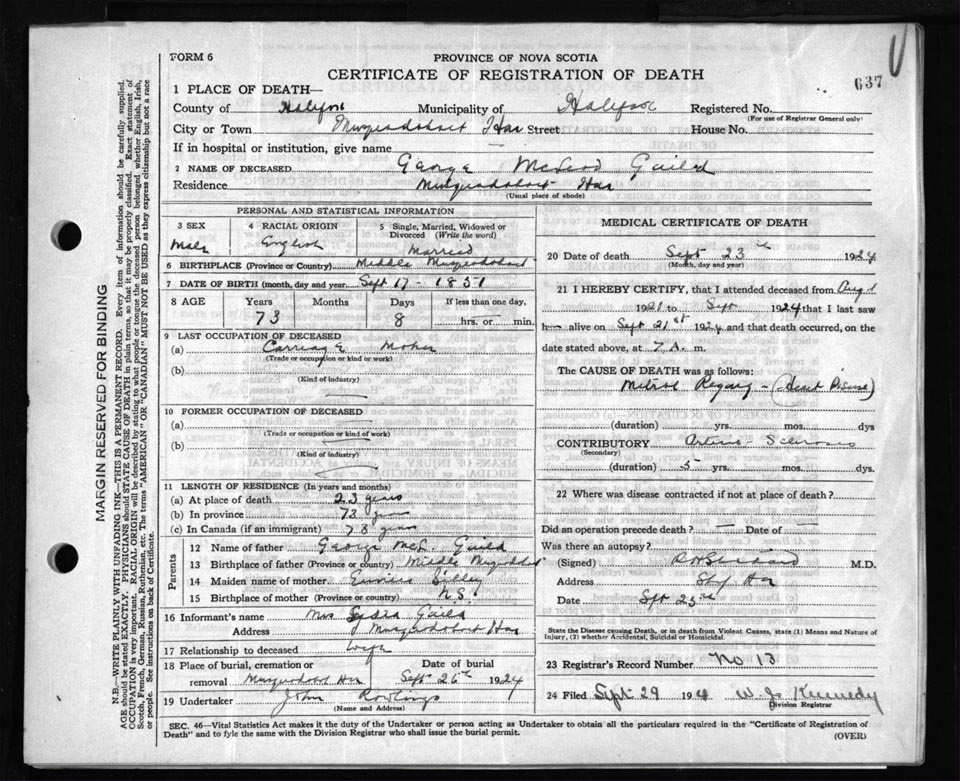 637
FORM 6
PROVINCE OF NOVA SCOTIA
CERTIFICATE OF REGISTRATION OF DEATH
1 PLACE OF DEATH—
County of Halifax Municipality of Halifax Registered No.
(For use of Registrar General only)
City or Town Musquodoboit Har Street House No.
If in hospital or institution, give name —
2 NAME OF DECEASED George McLeod Guild
Residence Musquodoboit Har
(Usual place of abode)
PERSONAL AND STATISTICAL INFORMATION
3 SEX Male
4 RACIAL ORIGIN English
5 Single, Married, Widowed or Divorced (Write the word) Married
6 BIRTHPLACE (Province or Country) Middle Musquodoboit
7 DATE OF BIRTH (month, day and year) Sept 17 - 1851
8 AGE Years Months Days If less than one day,
73 8 hrs. or min.
9 LAST OCCUPATION OF DECEASED
(a) Carriage Maker
(Trade or occupation or kind of work)
(b)
(Kind of industry)
10 FORMER OCCUPATION OF DECEASED
(a)
(Trade or occupation or kind of work)
(b)
(Kind of industry)
11 LENGTH OF RESIDENCE (In years and months)
(a) At place of death 23 years
(b) In province 73 years
(c) In Canada (if an immigrant) 73 years
Parents
12 Name of father George McL. Guild
13 Birthplace of father (Province or country) Middle Musquodoboit
14 Maiden name of mother
15 Birthplace of mother (Province or country) N.S.
16 Informant's name Mrs Lydia Guild
Address Musquodoboit Har
17 Relationship to deceased Wife
18 Place of burial, cremation or Date of burial
removal Musquodoboit Har Sept 26th 1924
19 Undertaker John Rowlings
(Name and Address)
MEDICAL CERTIFICATE OF DEATH
20 Date of death Sept 23rd 1924
(Month, day and year)
21 I HEREBY CERTIFY, that I attended deceased from Aug 1
1921 to Sept 1924 that I last saw
h alive on Sept 21st 1924 and that death occurred, on
date stated above, at 7 A. m.
The CAUSE OF DEATH was as follows:
Mitral Regurg - (Heart Disease)
(duration) yrs. mos. dys.
CONTRIBUTORY Arterio-Sclerosis
(Secondary)
(duration) 5 yrs. mos. dys.
22 Where was disease contracted if not at place of death?
Did an operation precede death? — Date of
Was there an autopsy?
(Signed) M.D.
Address Ship Har
Date Sept 25th
State the Disease causing Death, or in death from Violent Causes, state (1) Means and Nature of
Injury, (2) whether Accidental, Suicidal or Homicidal.
23 Registrar's Record Number No 13
24 Filed Sept 29 1924 W. J. Kennedy
Division Registrar
SEC. 46—Vital Statistics Act makes it the duty of the Undertaker or person acting as Undertaker to obtain all the particulars required in the "Certificate of Registration of
Death" and to fyle the same with the Division Registrar who shall issue the burial permit. (OVER)
MARGIN RESERVED FOR BINDING
N.B.—WRITE PLAINLY WITH UNFADING INK—THIS IS A PERMANENT RECORD. Every item of information should be carefully supplied.
AGE should be stated EXACTLY. PHYSICIANS should STATE CAUSE OF DEATH in plain terms, so that it may be properly classified. Exact statement of
OCCUPATION is very important. RACIAL ORIGIN will be described by stating to what people or tongue the deceased person belonged, whether English, Irish,
Scotch, French, German, Russian, Ruthenian, etc. The terms "AMERICAN" OR "CANADIAN" MUST NOT BE USED as they express citizenship but not a race
or people. See instructions on back of Certificate.